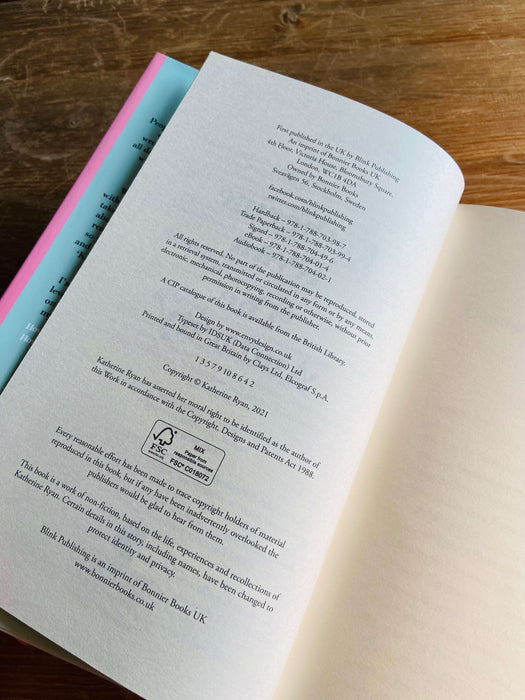 First published in the UK by Blink Publishing
An imprint of Bonnier Books UK
4th Floor, Victoria House, Bloomsbury Square,
London, WC1B 4DA
Owned by Bonnier Books
Sveavägen 56, Stockholm, Sweden
facebook.com/blinkpublishing
twitter.com/blinkpublishing
Hardback – 978-1-788-703-98-7
Trade Paperback – 978-1-788-703-99-4
Signed – 978-1-788-704-49-6
eBook – 978-1-788-704-01-4
Audiobook – 978-1-788-704-02-1
All rights reserved. No part of the publication may be reproduced, stored
in a retrieval system, transmitted or circulated in any form or by any means,
electronic, mechanical, photocopying, recording or otherwise, without prior
permission in writing from the publisher.
A CIP catalogue of this book is available from the British Library.
Design by www.envydesign.co.uk
Typeset by IDSUK (Data Connection) Ltd
Printed and bound in Great Britain by Clays Ltd, Elcograf S.p.A.
1 3 5 7 9 10 8 6 4 2
Copyright © Katherine Ryan, 2021
Katherine Ryan has asserted her moral right to be identified as the author of
this Work in accordance with the Copyright, Designs and Patents Act 1988.
FSC
www.fsc.org
MIX
Paper from
responsible sources
FSC® C018072
Every reasonable effort has been made to trace copyright holders of material
reproduced in this book, but if any have been inadvertently overlooked the
publishers would be glad to hear from them.
This book is a work of non-fiction, based on the life, experiences and recollections of
Katherine Ryan. Certain details in this story, including names, have been changed to
protect identity and privacy.
Blink Publishing is an imprint of Bonnier Books UK
www.bonnierbooks.co.uk